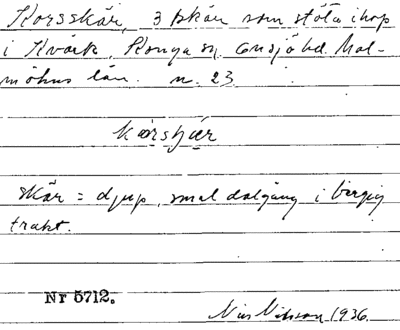 Korsskär, 3 skär som stöta ihop
i Kvärk, Konga sn. Onsjö hd. Mal-
möhus län. n. 23
korsʃær
skär = djup, smal dalgång i bergig
trakt.
Nr 5712.
Nils Nilsson 1936.